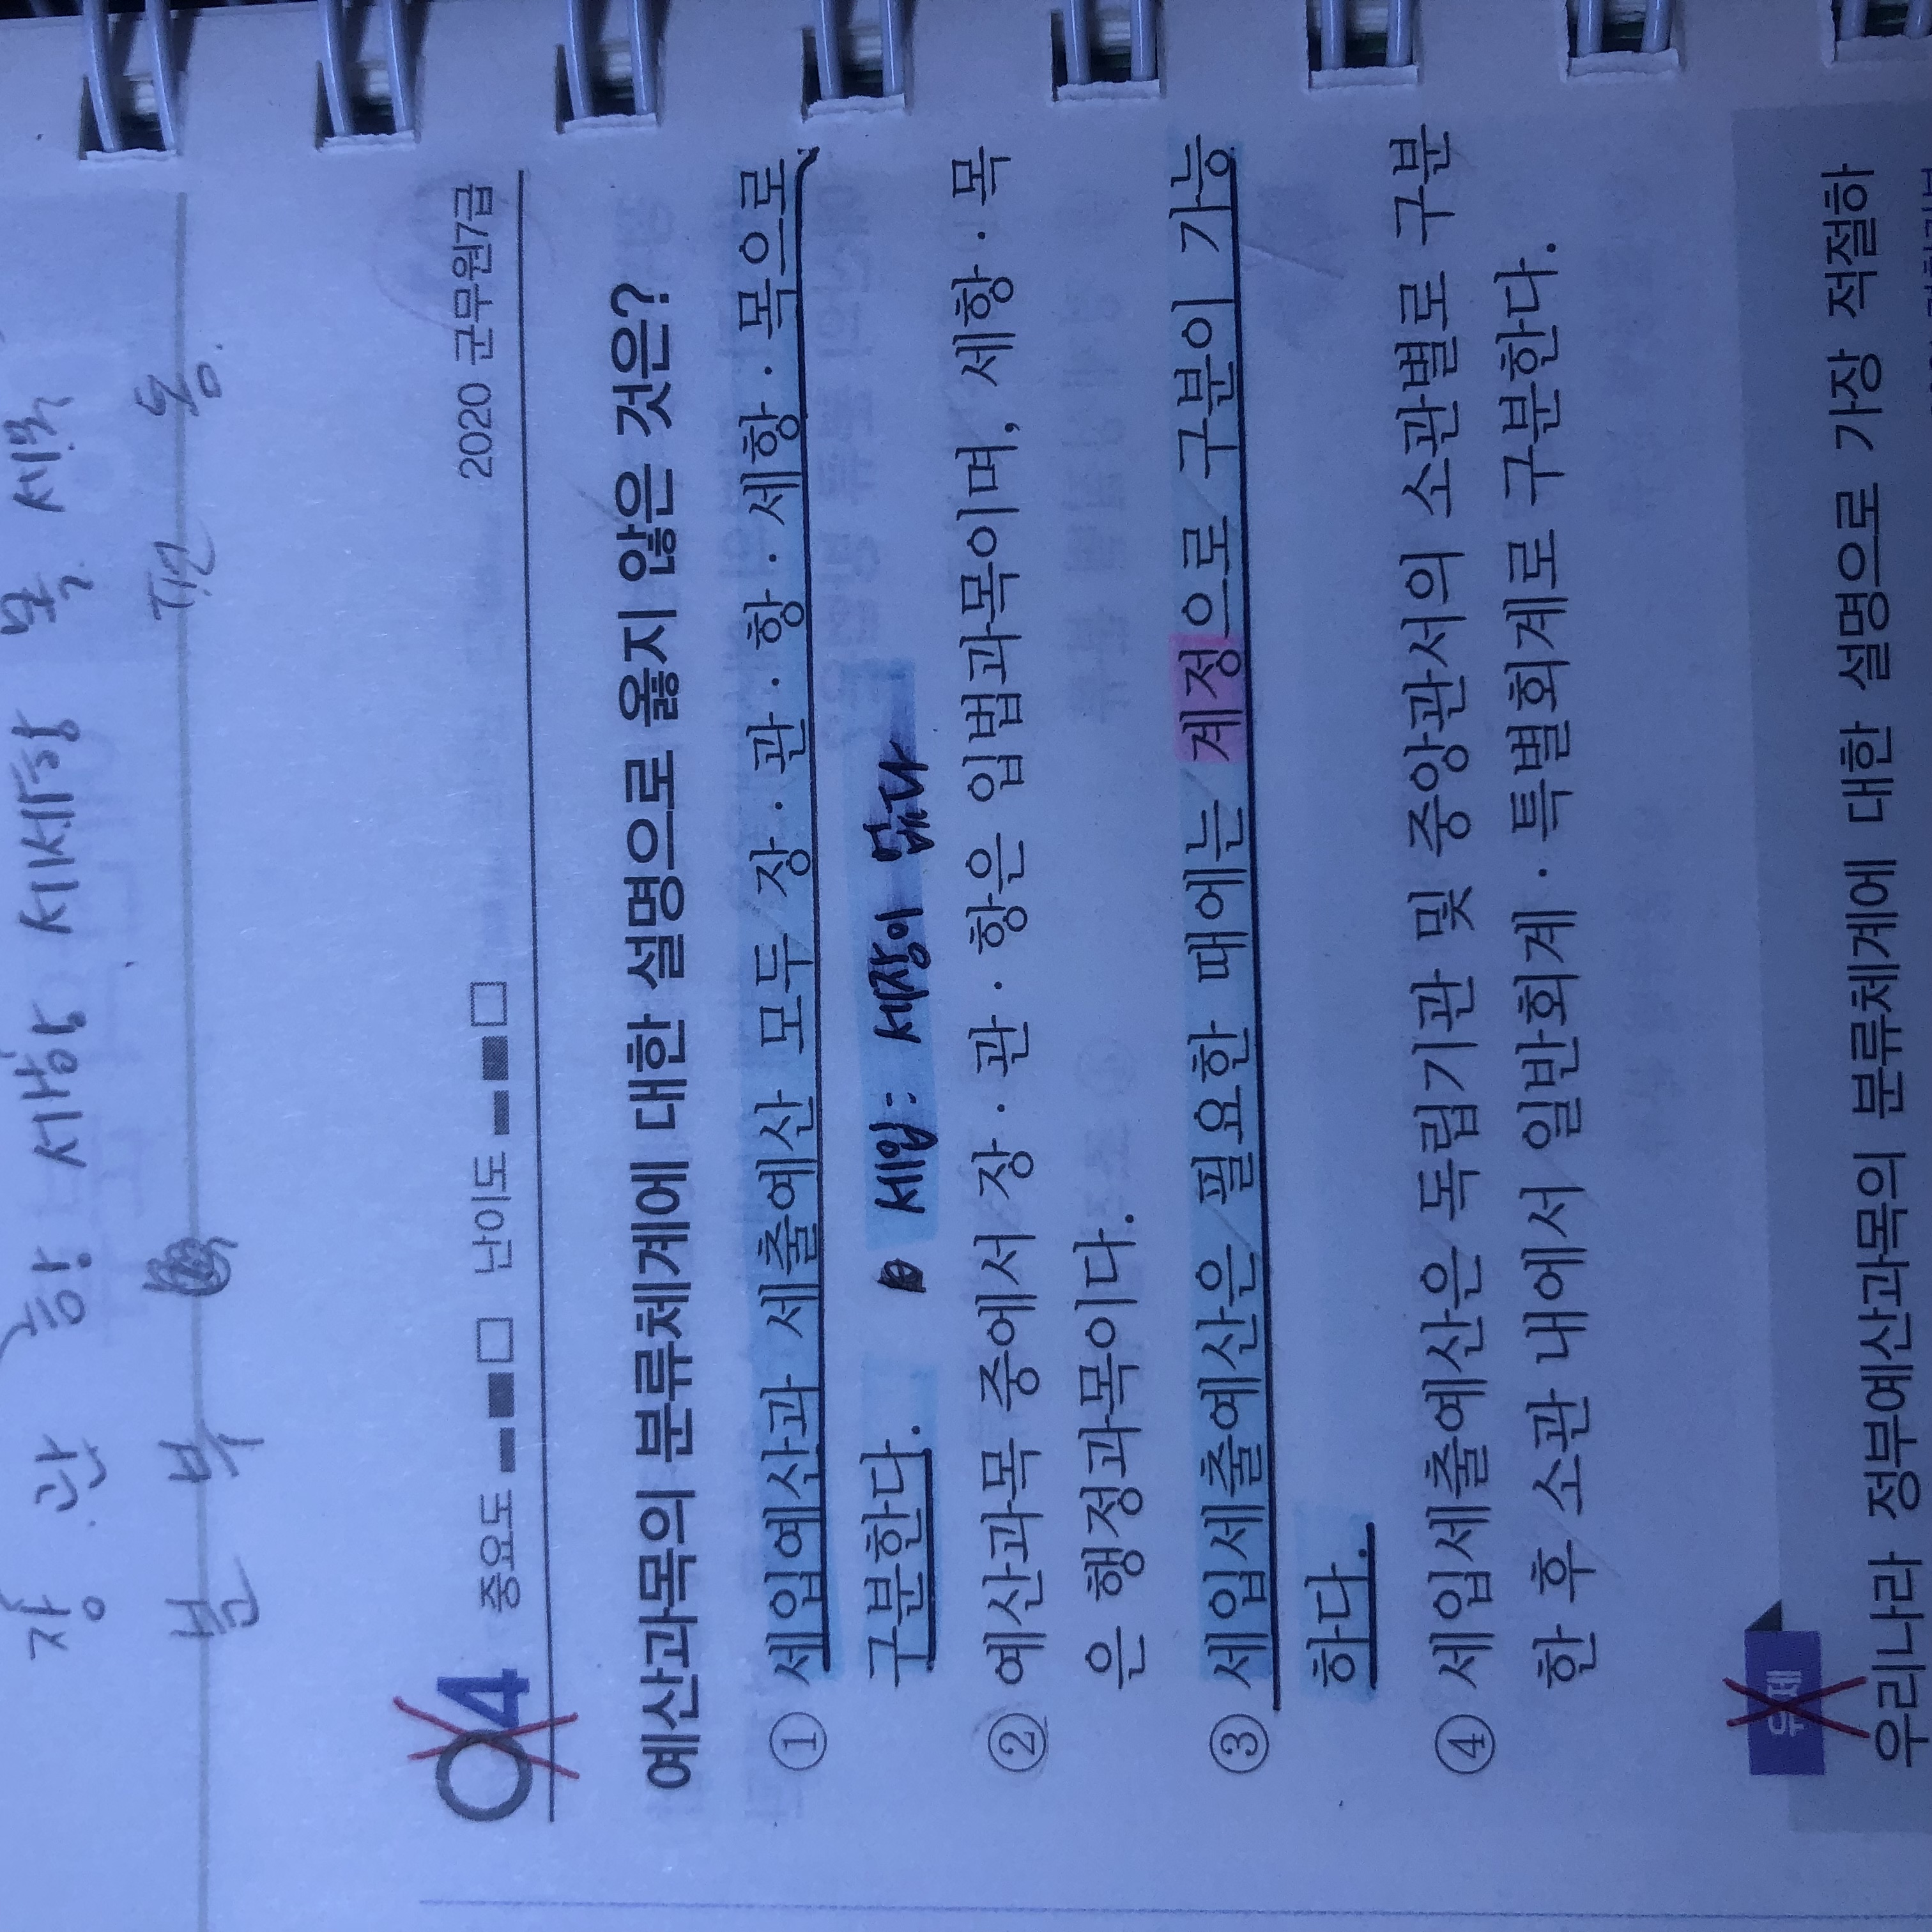 장 관 항 세항 세세항 목 세목
분 부
2020 군무원7급
04 중요도 난이도
예산과목의 분류체계에 대한 설명으로 옳지 않은 것은?
① 세입예산과 세출예산 모두 장·관·항·세항·목으로
구분한다. 세입: 세항이 없다
② 예산과목 중에서 장·관·항은 입법과목이며, 세항·목
은 행정과목이다.
③ 세입세출예산은 필요한 때에는 계정으로 구분이 가능
하다.
④ 세입세출예산은 독립기관 및 중앙관서의 소관별로 구분
한 후 소관 내에서 일반회계·특별회계로 구분한다.
유제
우리나라 정부예산과목의 분류체계에 대한 설명으로 가장 적절하